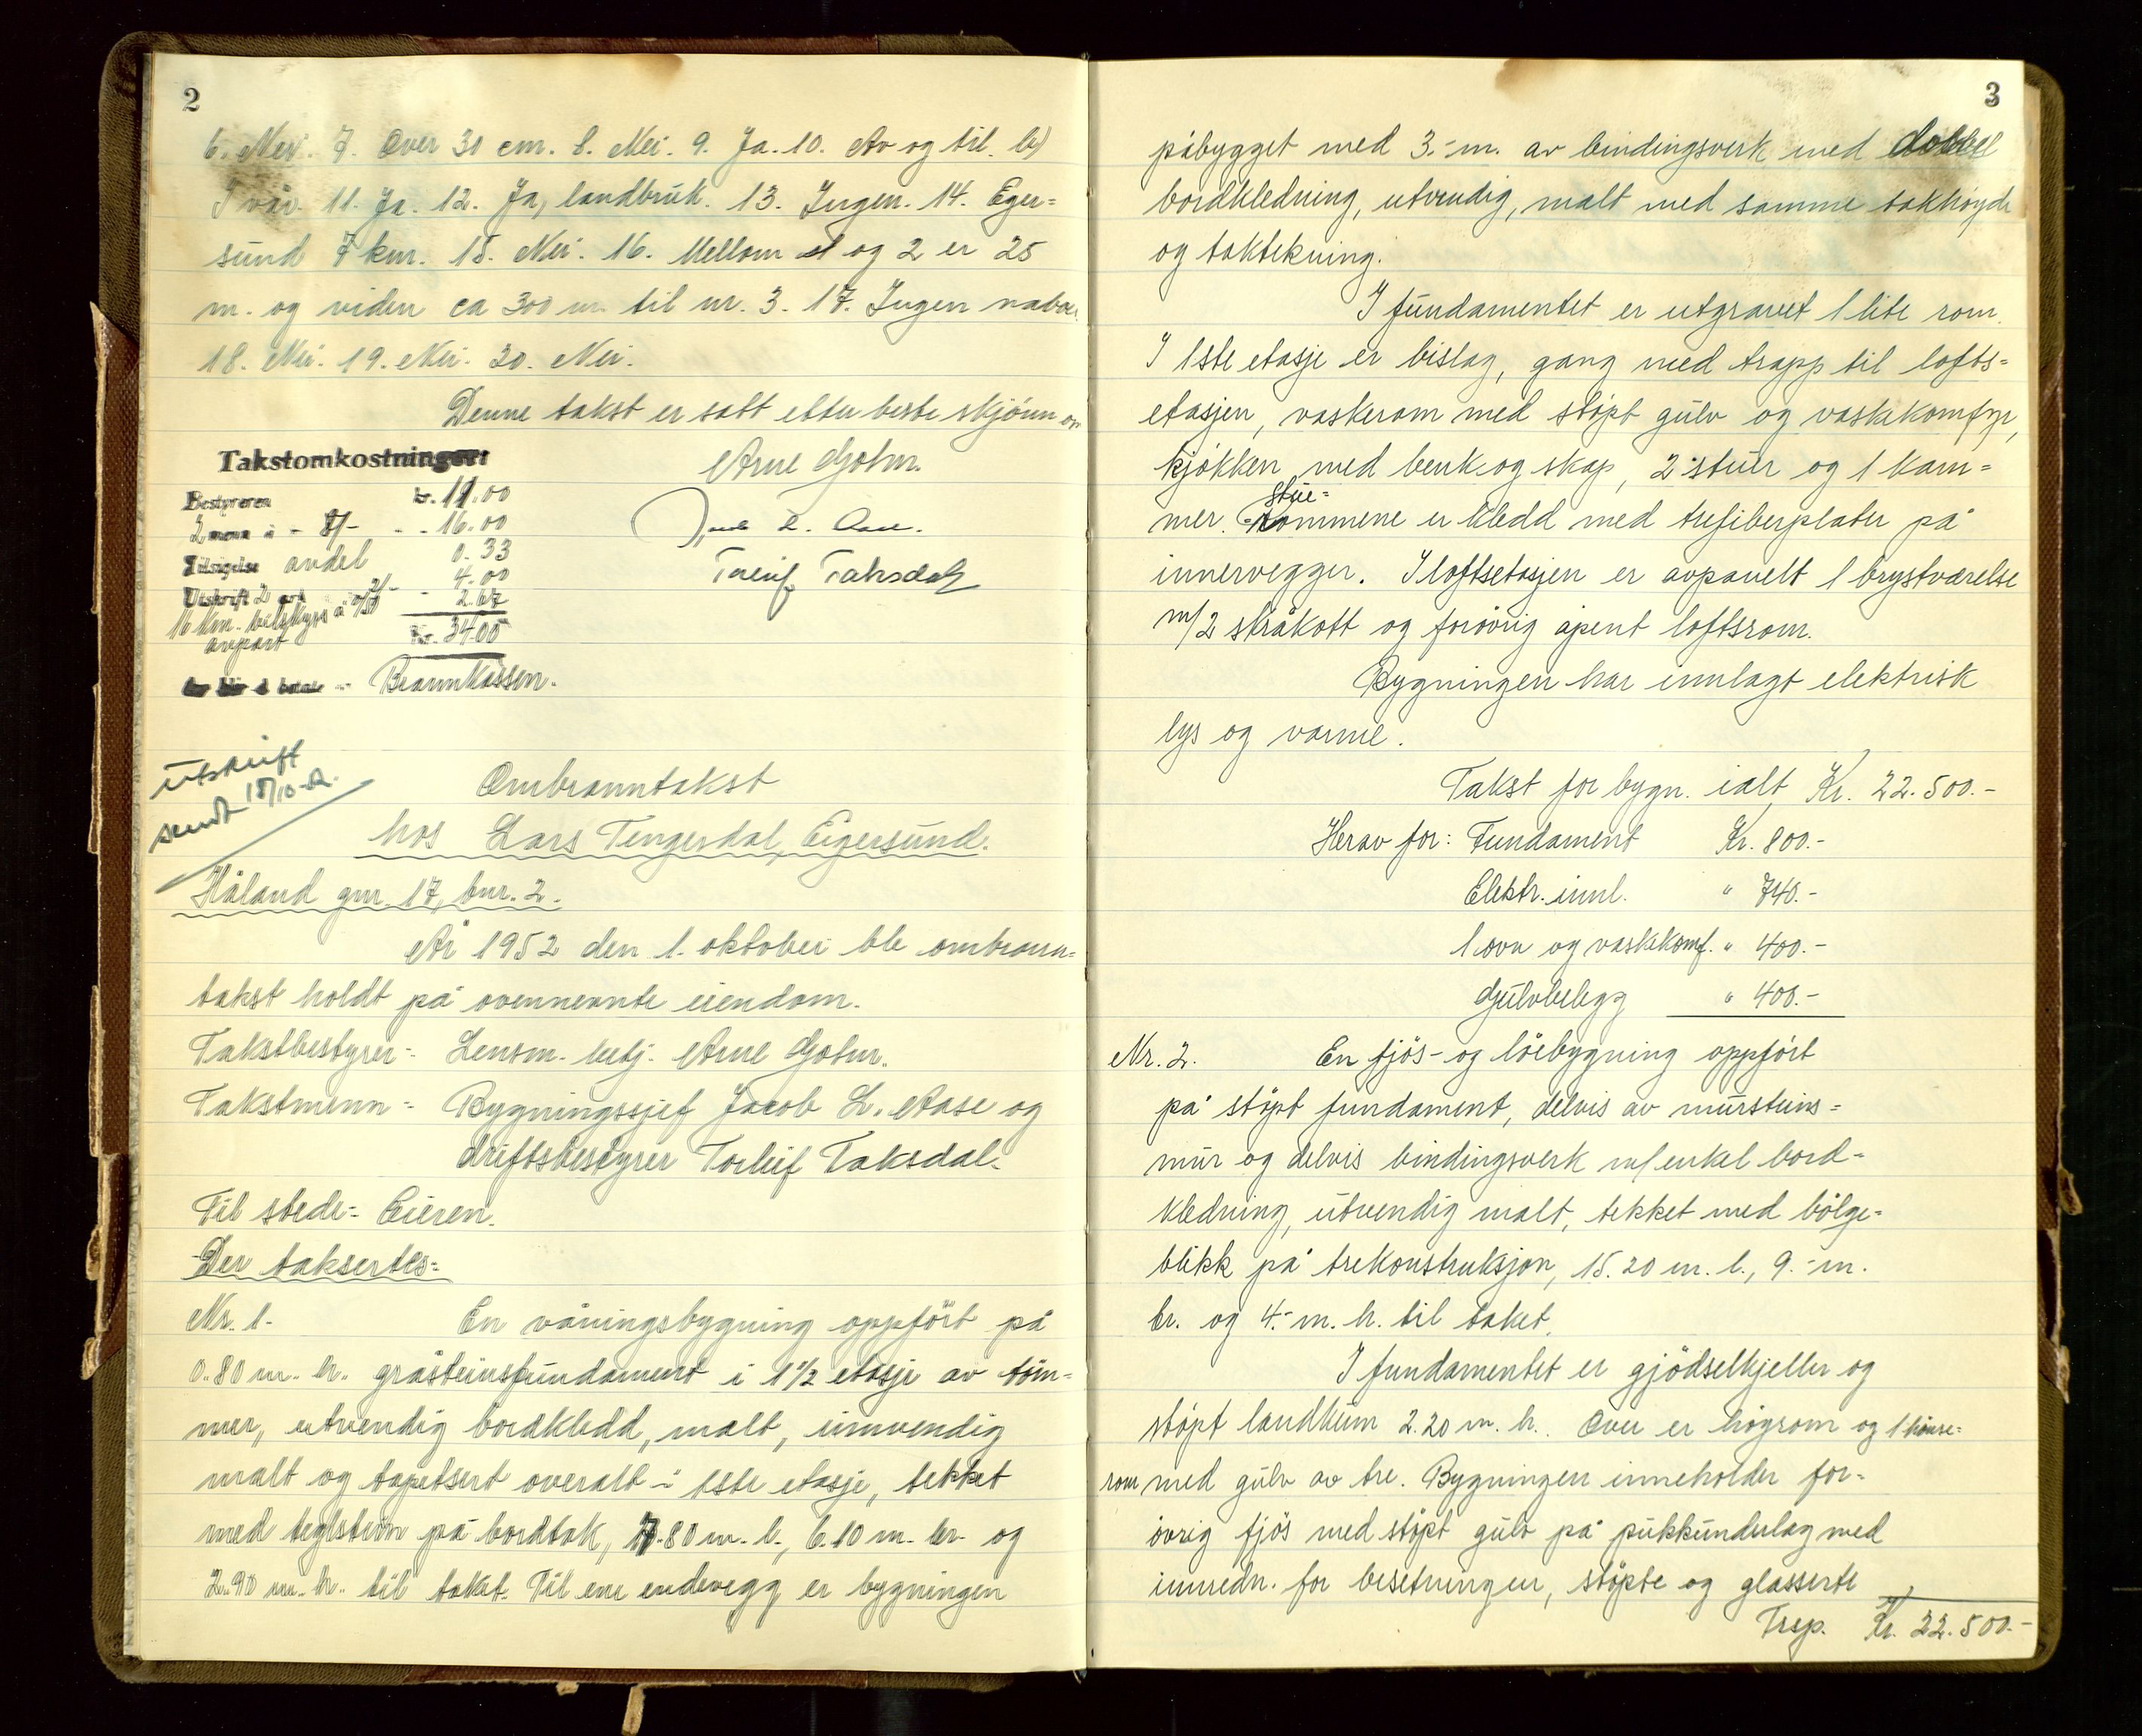 2
6. Nei. 7. Over 30 cm. 8. Nei. 9. Ja. 10. Av og til. b)
I vår. 11. Ja. 12. Ja, landbruk. 13. Ingen. 14. Eger=
sund 7 km. 15. Nei. 16. Mellom 1 og 2 er 25
m. og viden ca 300 m. til nr. 3. 17. Ingen naboer.
18. Nei. 19. Nei. 20. Nei.
Denne takst er satt etter beste skjønn og
Takstomkostninger
Arne Gohn.
Bestyreren kr. 11.00
2 menn à - 8/- - - 16.00
Tilsigelse andel 0.33
Torleif Taksdal
Utskrift 2 ark 2/- - 4.00
16 km. bilskyss à 2.67
anpart Kr. 34.00
Brannkassen.
Utskrift
sendt 18/10-52.
Ombranntakst
hos Lars Tengesdal, Eigersund.
Håland gnr. 17, bnr. 2.
År 1952 den 1. oktober ble ombrann=
takst holdt på ovennevnte eiendom.
Takstbestyrer= Lensm. betj. Arne Gohn.
Takstmenn= Bygningssjef Jacob L. Aase og
driftsbestyrer Torleif Taksdal.
Til stede= Eieren.
Der taksertes=
Nr. 1. En våningsbygning oppført på
0.80 m. h. gråsteinsfundament i 1 1/2 etasje av töm=
mer, utvendig bordkledd, malt, innvendig
malt og tapetsert overalt i 1ste etasje, tekket
med teglstein på bordtak, 7.80 m. l., 6.10 m. br. og
2.90 m. h. til taket. Til ene endevegg er bygningen
3
påbygget med 3.- m. av bindingsverk med dobbel
bordkledning, utvendig, malt med samme takhøyde
og taktekning.
I fundamentet er utgravet 1 lite rom.
I 1ste etasje er bislag, gang med trapp til lofts=
etasjen, vaskerom med støpt gulv og vaskekomfyr,
kjøkken med benk og skap, 2 stuer og 1 kam=
mer. Stue=
rommene er kledd med trefiberplater på
innervegger. I loftsetasjen er avpanelt 1 brystværelse
m/2 stråkott og forøvrig åpent loftsrom.
Bygningen har innlagt elektrisk
lys og varme.
Takst for bygn. ialt Kr. 22.500.-
Herav for: Fundament Kr. 800.-
Elektr. innl. " 740.-
1 ovn og vaskekomf. " 400.-
Gulvbelegg " 400.-
Nr. 2. En fjös- og löebygning oppfört
på støpt fundament, delvis av mursteins=
mur og delvis bindingsverk m/enkel bord=
kledning, utvendig malt, tekket med bölge=
blikk på trekonstruksjon, 15.20 m. l., 9.- m.
br. og 4.- m. h. til taket.
I fundamentet er gjödselkjeller og
støpt landkum 2.20 m. h. Over er högrom og 1 hönse=
rom med gulv av tre. Bygningen inneholder for=
övrig fjös med støpt gulv på pukkunderlag med
innredn. for besetningen, støpte og glasserte
Trsp. Kr. 22.500.-